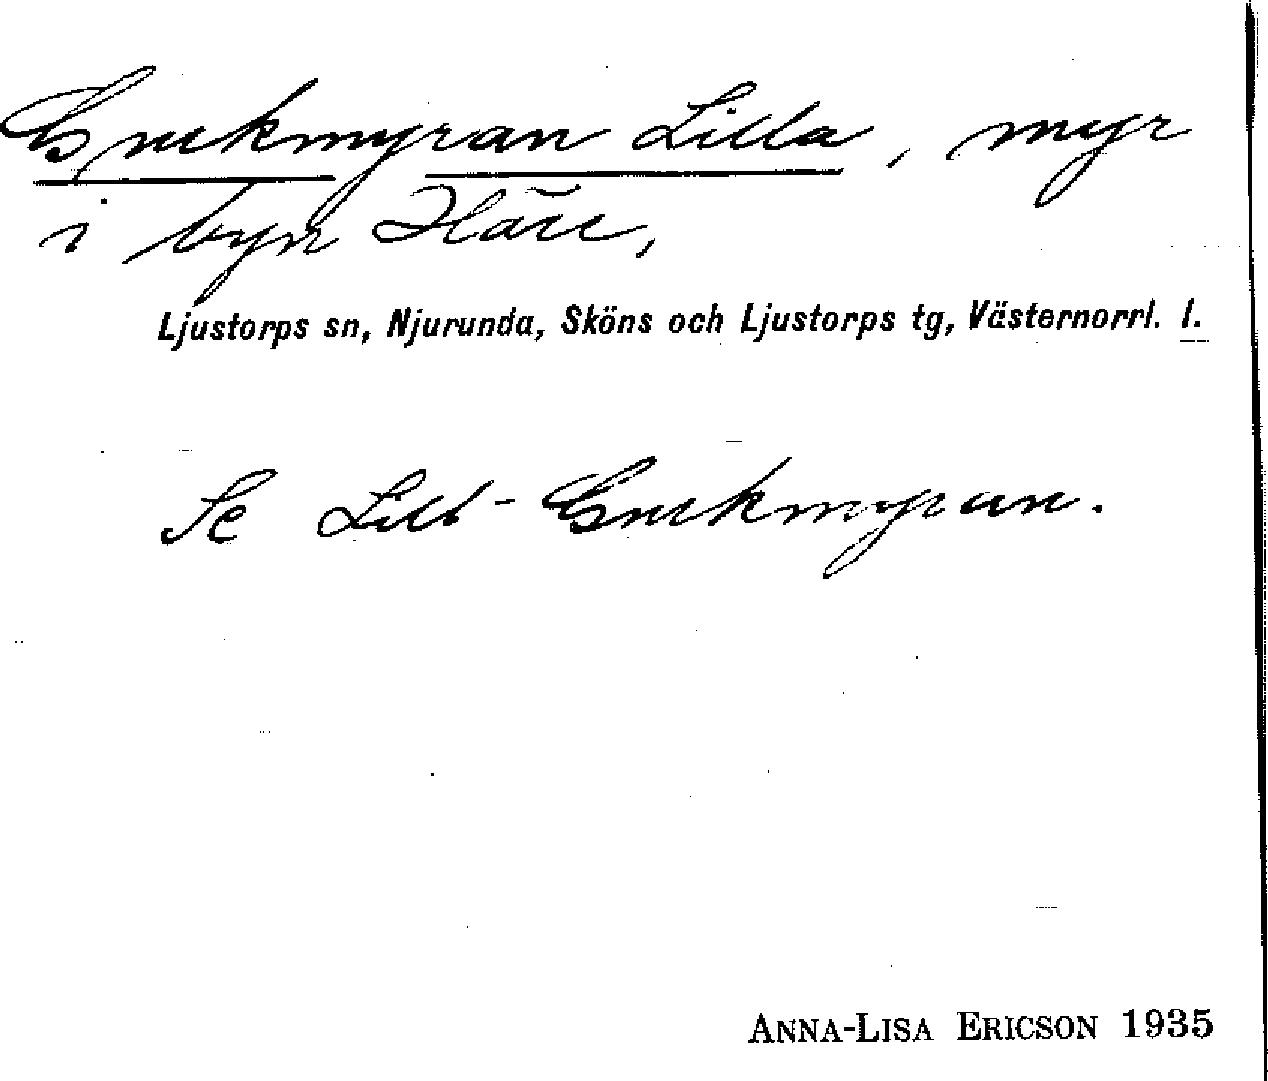 Lilla, myr
i byn Häre,
Ljustorps sn, Njurunda, Sköns och Ljustorps tg, Västernorrl. l.
Se Lill-
ANNA-LISA ERICSON 1935